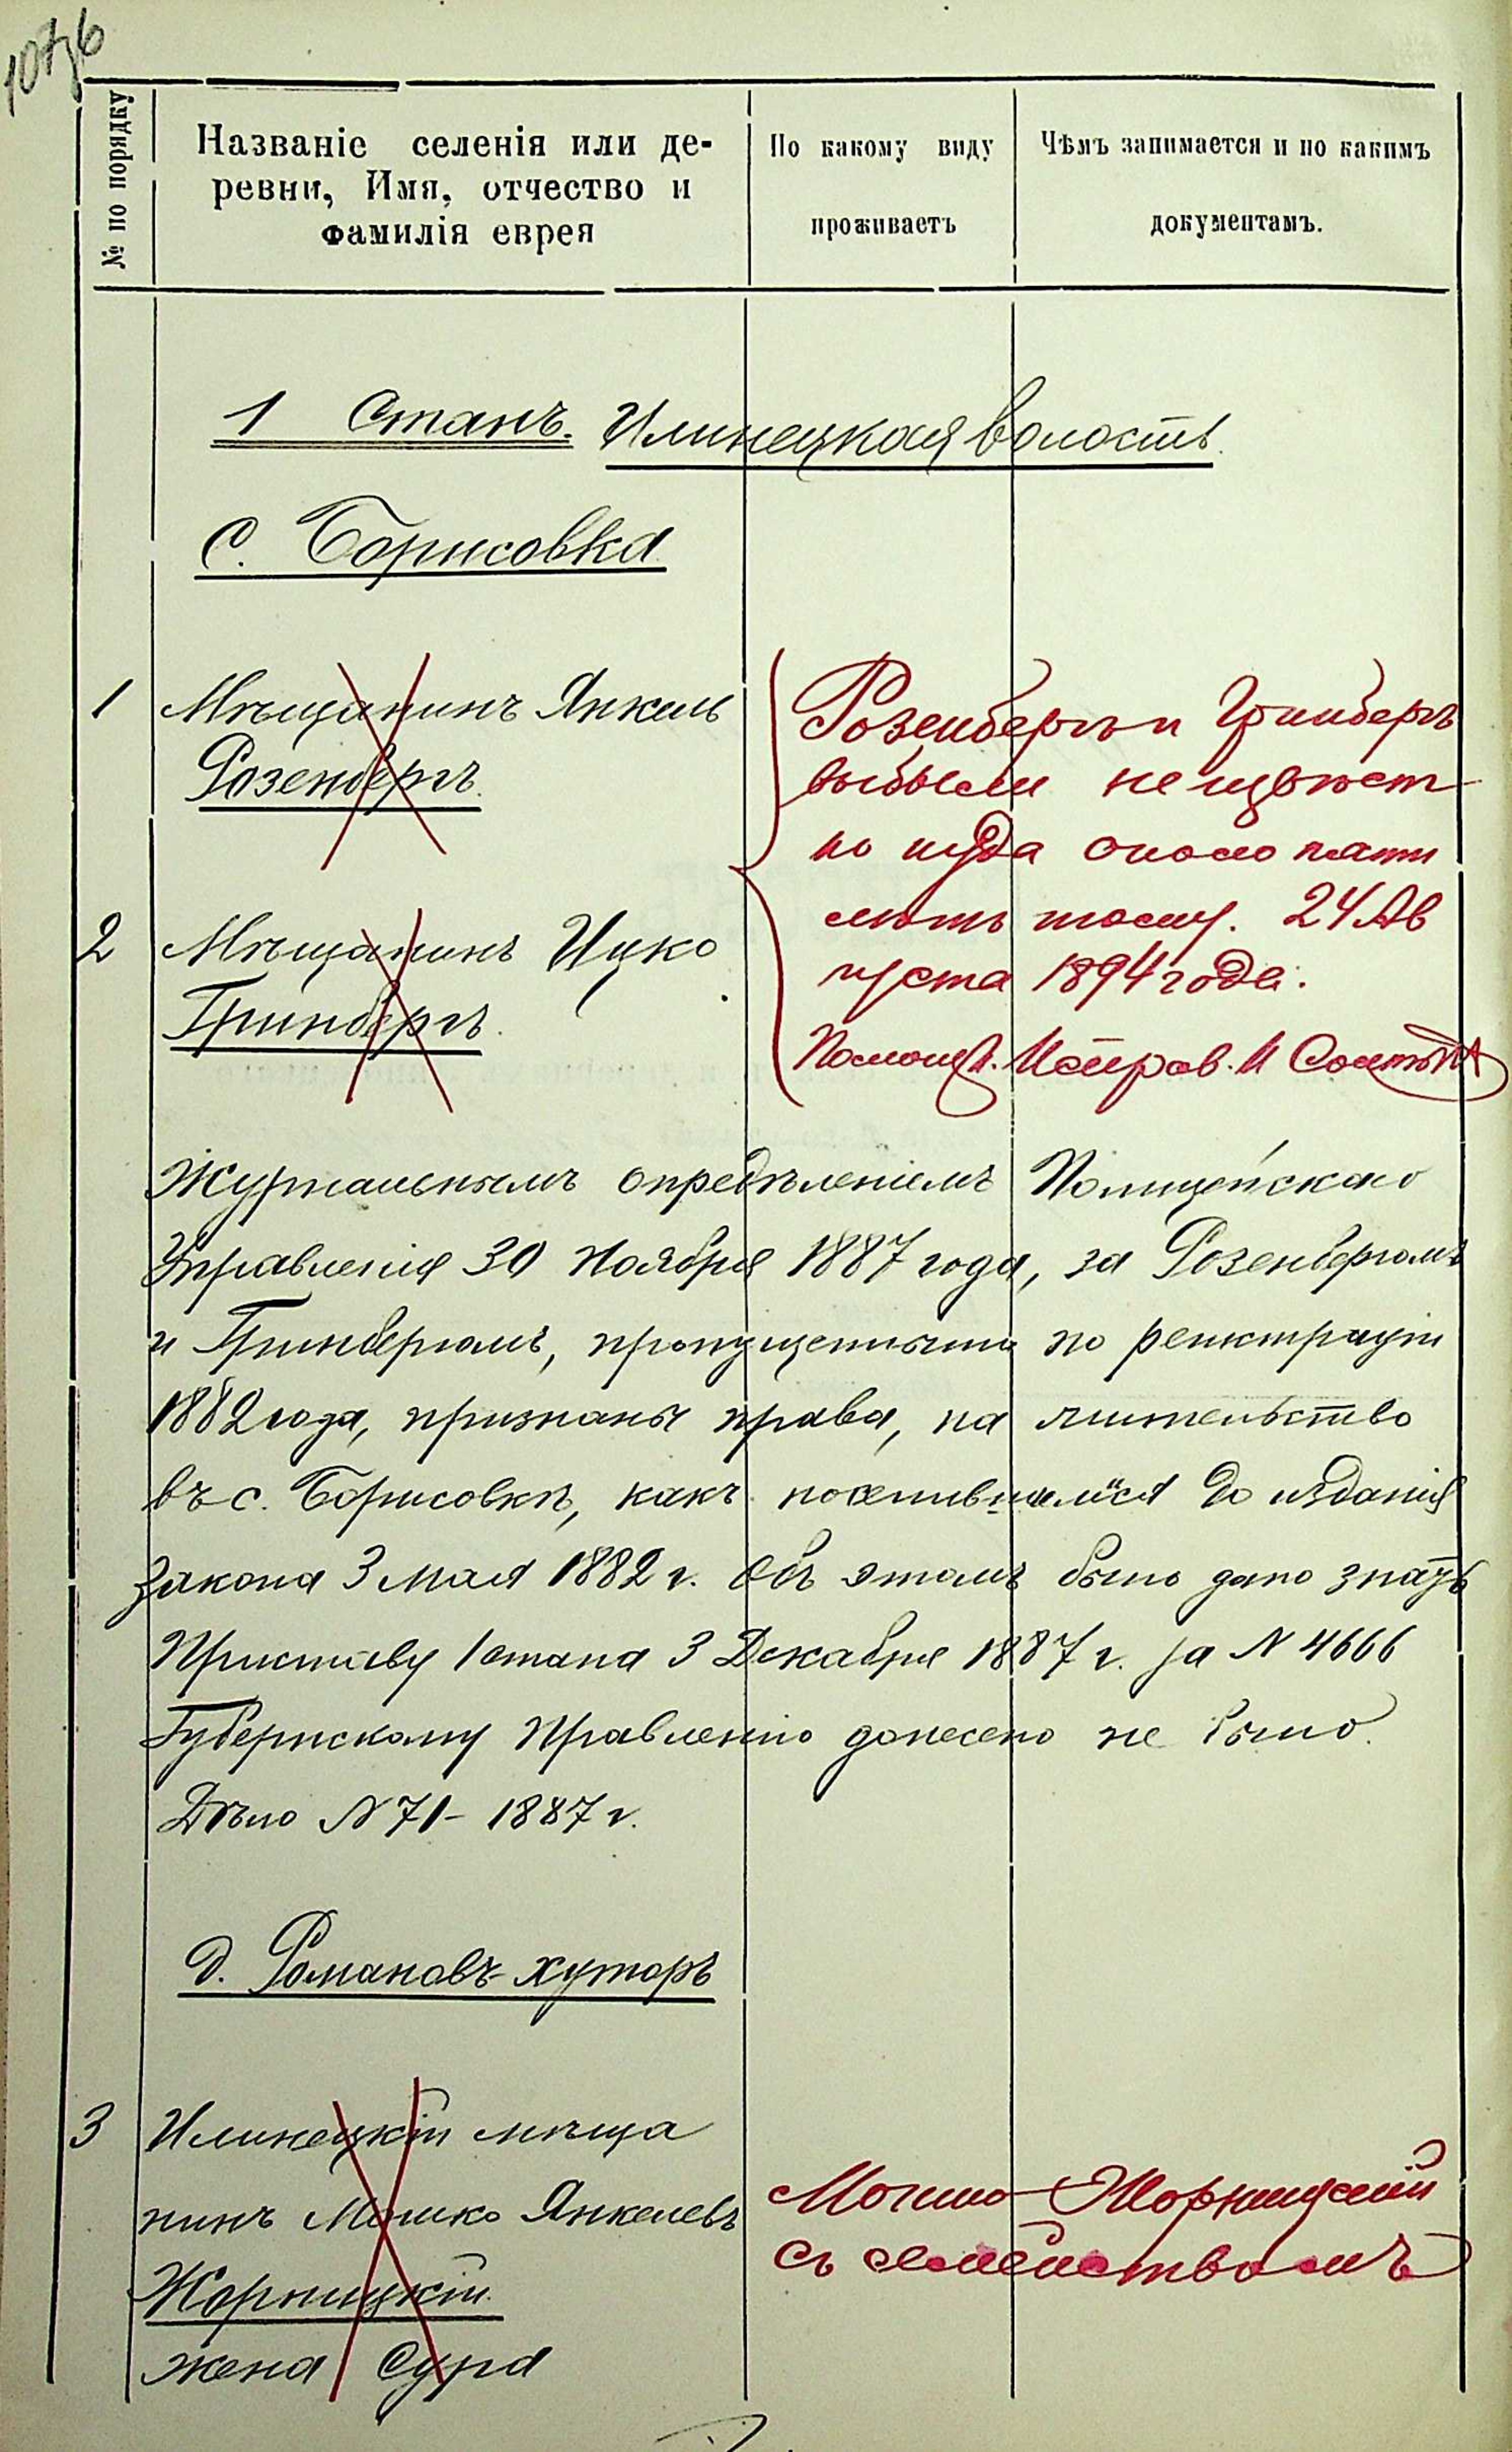 1076
№ по порядку
Названіе селенія или де-
ревни, Имя, отчество и
фамилія еврея
По какому виду
проживаетъ
Чѣмъ занимается и по какимъ
документамъ.
1 Станъ. Илинецкая волость.
С. Борисовка
1 Мѣщанинъ Янкель
Розенбергъ.
2 Мѣщанинъ Ицко
Гринбергъ.
Розенбергъ и Гринбергъ
выбыли неизвѣст-
но куда около пяти
лѣтъ тому. 24 Ав
густа 1894 года.
Помощн. Исправ. И
Журнальнымъ опредѣленіемъ Полицейскаго
Управленія 30 Ноября 1887 года, за Розенбергомъ
и Гринбергомъ, пропущенными по регистраціи
1882 года, признаны права, на жительство
въ с. Борисовкѣ, какъ поселившимися до изданія
Закона 3 Мая 1882 г. Объ этомъ было дано знать
Приставу 1 стана 3 Декабря 1887 г. за N 4666
Губернскому Правленію донесено не было.
Дѣло N 71 - 1887 г.
д. Романовъ-хуторъ
3 Илинецкій мѣща
нинъ Мошко Янкелевъ
Жорницкій.
жена Сура
Мошко Жорницкій
съ семействомъ